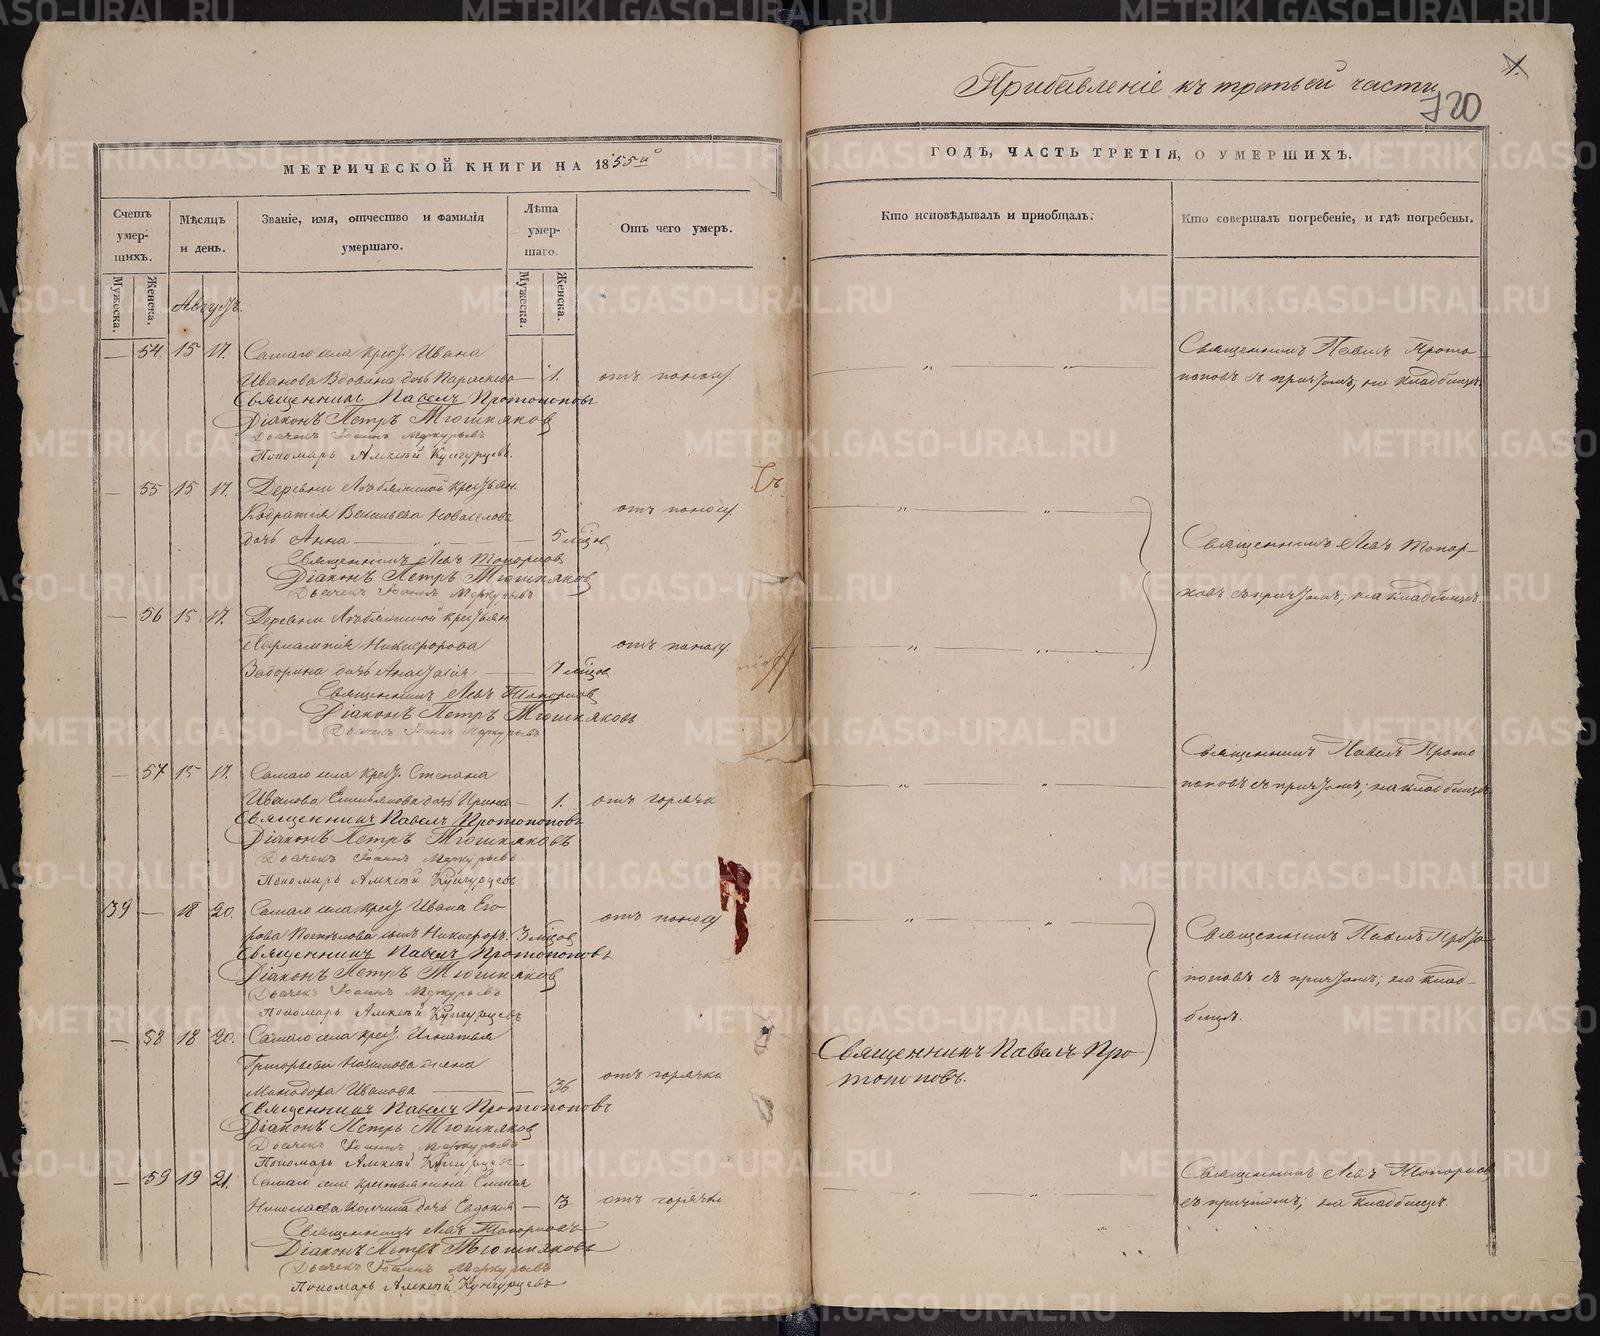 Прибавленіе къ третьей части
1.
720
МЕТРИЧЕСКОЙ КНИГИ НА 1855й
ГОДЪ, ЧАСТЬ ТРЕТІЯ, О УМЕРШИХЪ.
Счетъ умер-шихъ.
Мужеска.
Женска.
Мѣсяцъ и день.
Званіе, имя, отчество и фамилія умершаго.
Лѣта умер-шаго.
Мужеска.
Женска.
Отъ чего умеръ.
Кто исповѣдывалъ и приобщалъ.
Кто совершалъ погребеніе, и гдѣ погребены.
Августъ.
— 54. 15 17. Самаго села крест. Ивана
Иванова Вдовина дочь Параскева — 1. отъ поносу.
Священникъ Павелъ Прото-
поповъ съ причтомъ; на кладбищѣ.
Священникъ Павелъ Протопоповъ
Діаконъ Петръ Тюшняковъ
Дьячекъ Іоаннъ Меркурьевъ
Пономарь Алексѣй Кунгурцевъ.
— 55 15 17. Деревни крестьян.
Васильева Новоселова отъ поносу.
дочь Анна — " — 5 мѣсцов
Священникъ Левъ Топор-
ковъ съ причтомъ; на кладбищѣ.
Священникъ Левъ Топорковъ
Діаконъ Петръ Тюшняковъ
Дьячекъ Іоаннъ Меркурьевъ
— 56 15 17. Деревни крестьян.
Никифорова отъ поносу.
Задорина дочь Анастасія — 7 мѣсцов
Священникъ Левъ Топорковъ
Діаконъ Петръ Тюшняковъ
Дьячекъ Іоаннъ Меркурьевъ
— 57 15 17. Самаго села крест. Степана
Иванова Емельянова дочь Ирина — 1. отъ горячки
Священникъ Павелъ Прото
поповъ съ причтомъ; на кладбищѣ
Священникъ Павелъ Протопоповъ
Діаконъ Петръ Тюшняковъ
Дьячекъ Іоаннъ Меркурьевъ
Пономарь Алексѣй Кунгурцевъ
39 — 18 20. Самаго села крест. Ивана Его
рова сынъ Никифоръ. 3 мѣсцов отъ поносу
Священникъ Павелъ Прото
поповъ съ причтомъ; на клад-
бищѣ.
Священникъ Павелъ Протопоповъ
Діаконъ Петръ Тюшняковъ
Дьячекъ Іоаннъ Меркурьевъ
Пономарь Алексѣй Кунгурцевъ
— 58 18 20. Самаго села крест. Игнатья
Григорьева жена
Иванова — 36 отъ горячки
Священникъ Павелъ Про
топоповъ.
Священникъ Павелъ Протопоповъ
Діаконъ Петръ Тюшняковъ
Дьячекъ Іоаннъ Меркурьевъ
Пономарь Алексѣй Кунгурцевъ
— 59 19 21. Самаго села крестьянина
Николаева дочь Евдокія — 3 отъ горячки
Священникъ Левъ Топорковъ
съ причтомъ; на кладбищѣ.
Священникъ Левъ Топорковъ
Діаконъ Петръ Тюшняковъ
Дьячекъ Іоаннъ Меркурьевъ
Пономарь Алексѣй Кунгурцевъ
METRIKI.GASO-URAL.RU